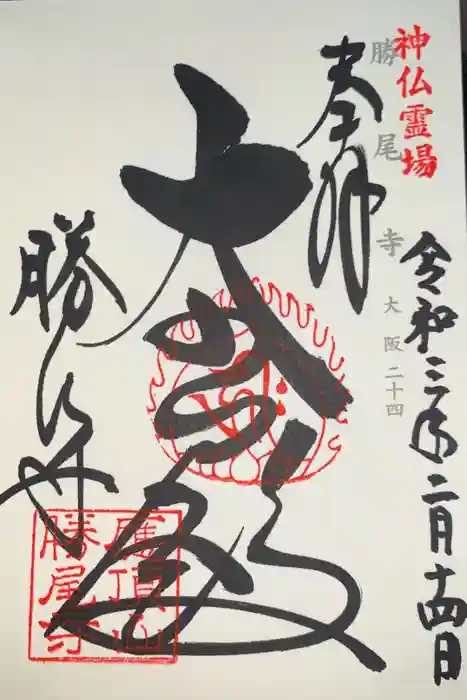 神仏霊場
勝尾寺 大阪二十四
奉拝
令和三年二月十四日
大悲殿
勝尾寺
應頂山
勝尾寺